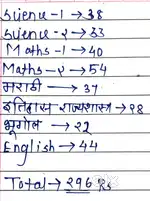 Science-1 → 38
Science-२ → 33
Maths-1 → 40
Maths-२ → 54
मराठी → 37
इतिहास-राज्यशास्त्र → २8
भूगोल → 22
English → 44
Total → 296